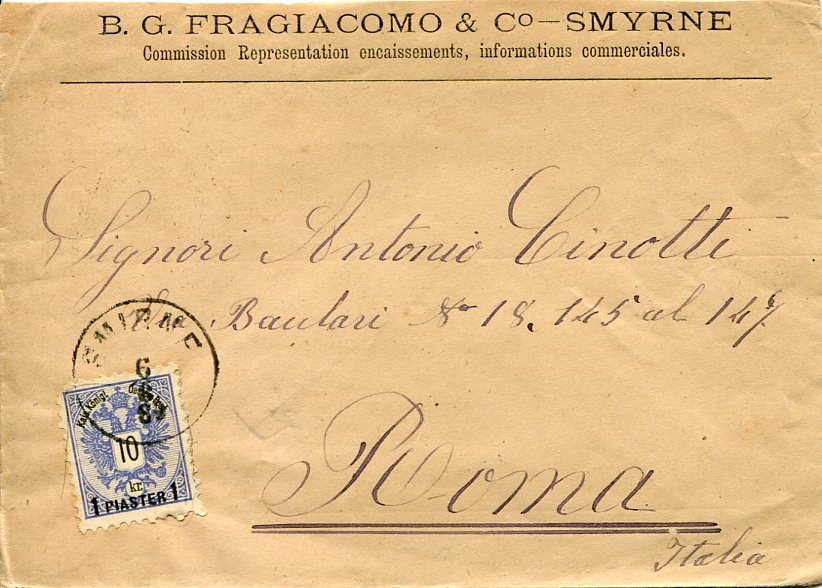 B. G. FRAGIACOMO & Co — SMYRNE
Commission Representation encaissements, informations commerciales.
Signori Antonio Cinotti
Via Baulari No 18. 145 al 147
Roma
Italia
SMIRNE
6
10
kr.
1 PIASTER 1